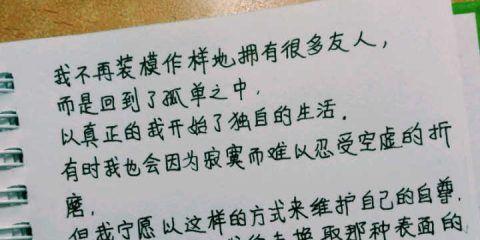 我不再装模作样地拥有很多友人，
而是回到了孤单之中，
以真正的我开始了独自的生活。
有时我也会因为寂寞而难以忍受空虚的折
磨，
但我宁愿以这样的方式来维护自己的自尊，
去换取那种表面的